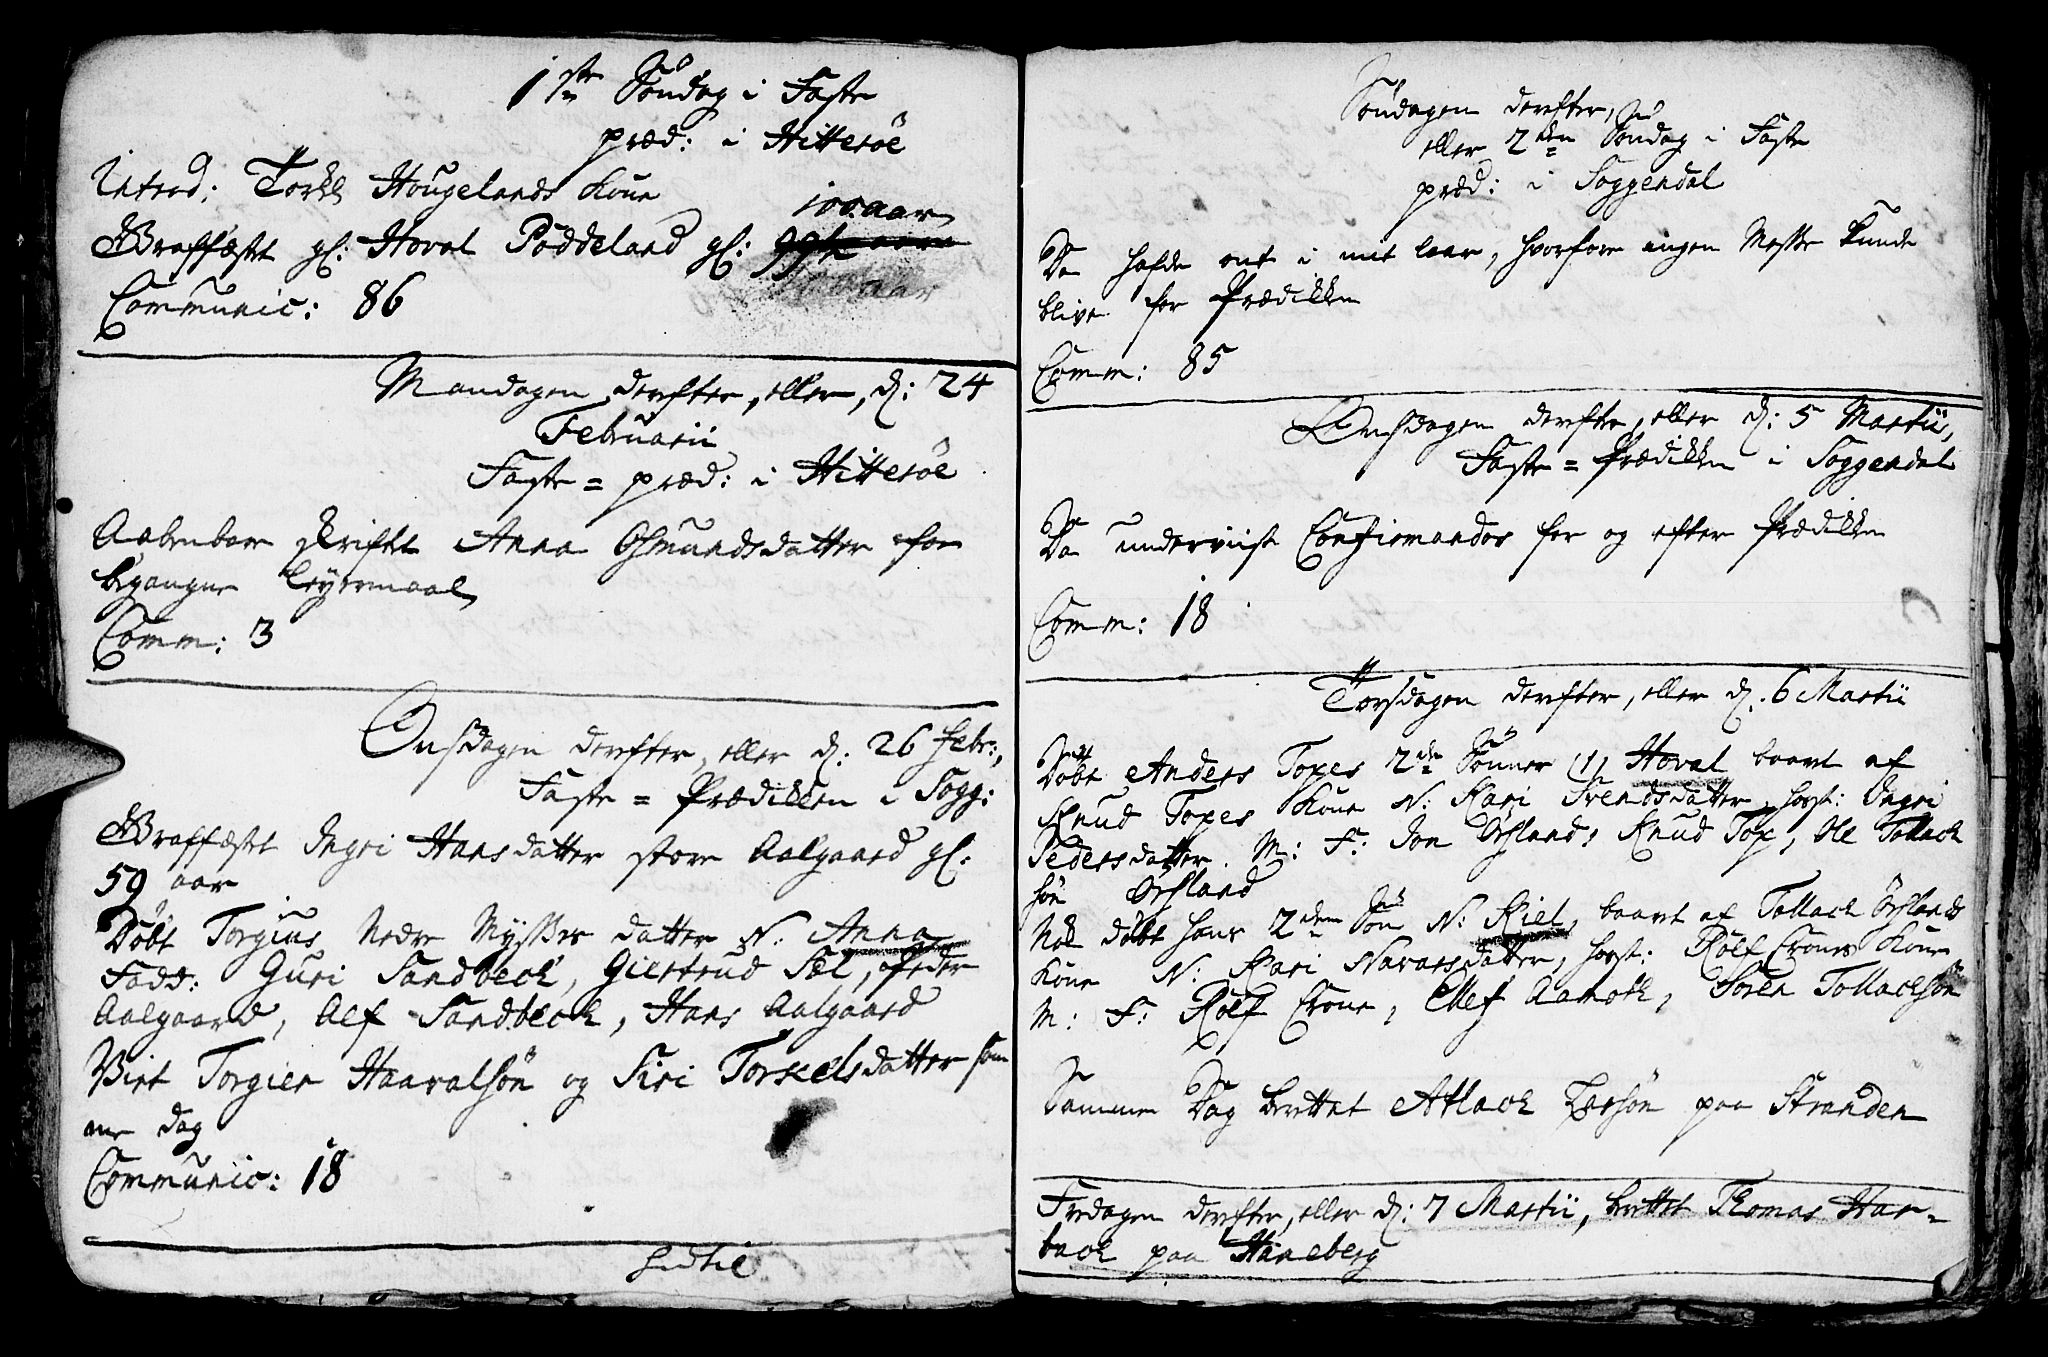 1ste Søndag i Faste
præd: i Hitterøe
Introd: Torkel Hougelands Kone
100 aar
Graffæstet gl: Hoval Poddeland gl:
Communic: 86
Mandagen derefter, eller, d: 24
Februarii
Faste = præd: i Hitterøe
Aabenbare skriftet Anna Osmundsdatter for
begangne Leyermaal
Comm: 3
Onsdagen derefter, eller d: 26 Febr:,
Faste = Prædikken i Sogg:
Graffæstet Ingri Hansdatter store Aalgaard gl:
59 aar
Døbt Torgius Nedre Mysses datter N: Anna
Fadd: Guri Sandbeck, Giertrud Sæl, Peder
Aalgaard, Alf Sandbeck, Hans Aalgaard
Viet Torgier Haavalsøn og Siri Torkelsdatter sam
me dag
Communic: 18
hidtil
Søndagen derefter,
eller 2den Søndag i Faste
præd: i Soggendal
Da hafde ont i mit laar, hvorfore ingen Messe kunde
blive for Prædikken
Comm: 85
Onsdagen derefter, eller d: 5 Martii,
Faste = Prædikken i Soggendal
Da underviist Confirmandos for og efter Prædikken
Comm: 18
Torsdagen derefter, eller d: 6 Martii
Døbt Anders Topes 2de Sønner (1) Hoval baaret af
Knud Topes Kone N: Kari Svendsdatter, host: Ingri
Pedersdatter. M: F: Jon Ørsland, Knud Top, Ole Tollack
søn Ørsland
Nok døbt hans 2den Søn N: Kiel, baaret af Tollack Ørslands
Kone N: Kari Navarsdatter, host: Rolf Crones Kone
M: F: Rolf Crone, Ellef Aamodt, Søren Tollacksøn
Samme Dag berettet Atlack Persøn paa Stranden
Fredagen derefter, eller d: 7 Martii, berettet Thomas Har-
back paa Haneberg